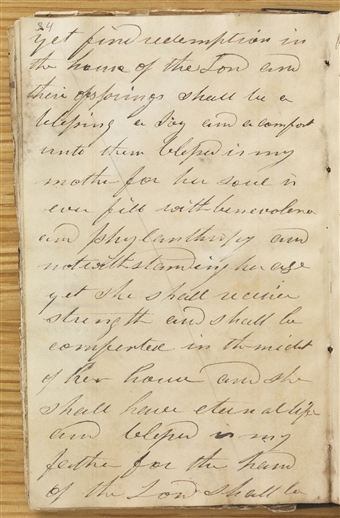 34
yet find redemption in
the house of the Lord and
their ofsprings shall be a
blessing a Joy and a comfort
unto them blessed is my
mother for her soul is
ever fill with benevolence
and phylanthropy and
notwithstanding her age
yet she shall receive
strength and shall be
comforted in the midst
of her house and she
shall have eternal life
and blessed is my
father for the hand
of the Lord shall be